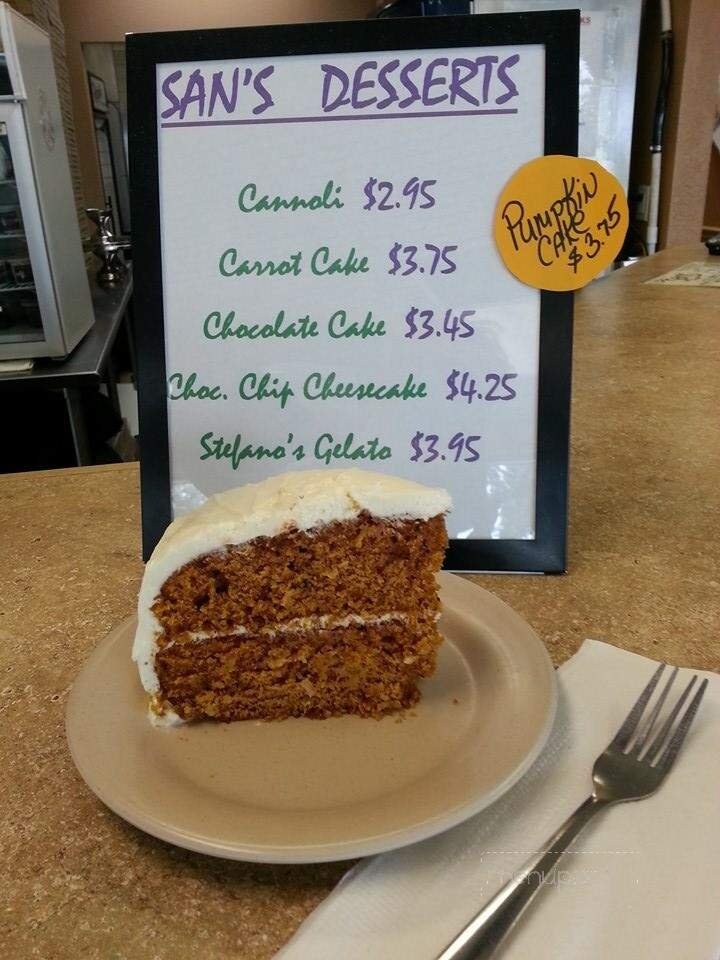 SAN'S DESSERTS
Cannoli $2.95
Carrot Cake $3.75
Chocolate Cake $3.45
Choc. Chip Cheesecake $4.25
Stefano's Gelato $3.95
PUMPKIN
CAKE
$3.75